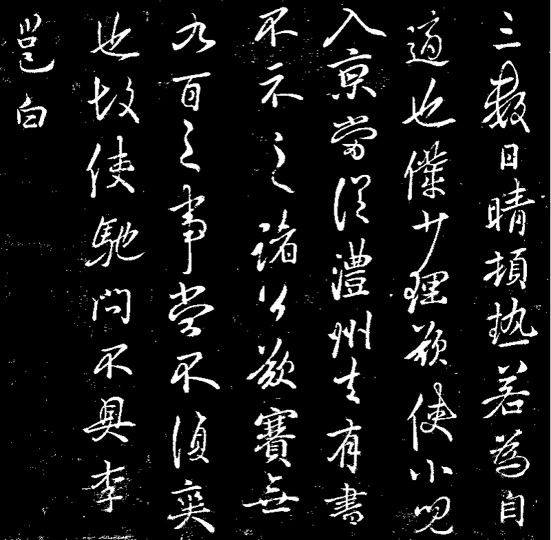 三數日晴頓熱若為自
適也僕少理欲使小兒
入京當從澧州去有書
不示之諸公欲賽無
九百之事當不爽
也故使馳問不具李
邕白